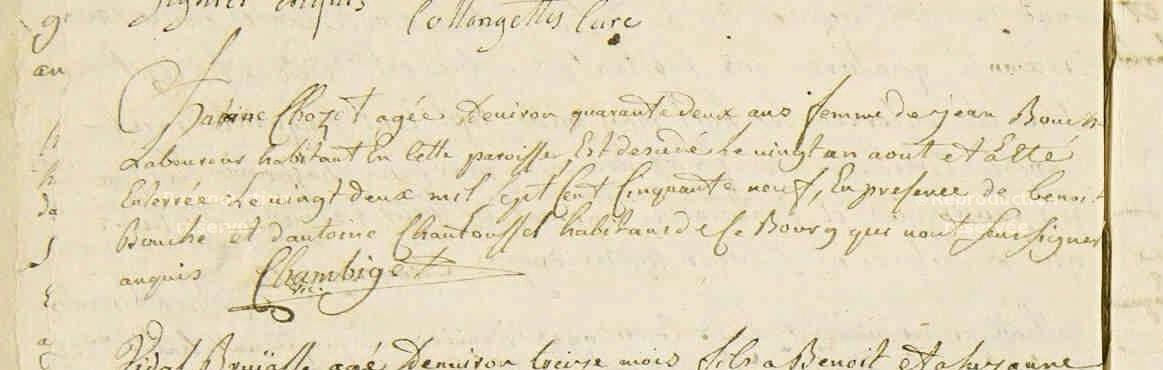 Collangettes Curé
Chozet agée denviron quarante deux ans femme de jean Bouch
Laboureur habitant En Cette paroisse, Est decedé Le vingt un aout et a Eté
Enterrée Le vingt deux mil sept Cent Cinquante neuf, En presence de benoit
Bouche et dantoine Chantousset habitans de Ce Bourg qui nont Sceu signer
anquis Chambiget
vic.
Vidal agé Denviron treize mois fils a Benoit et a suzanne
Reproduction
réservée